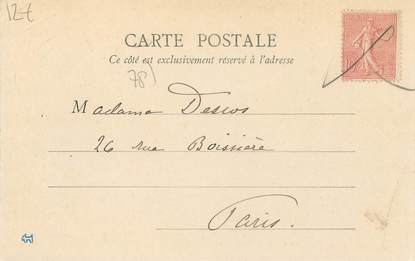 12€
CARTE POSTALE
Ce côté est exclusivement réservé à l'adresse
78)
Madame
26 rue Boissière
Paris.